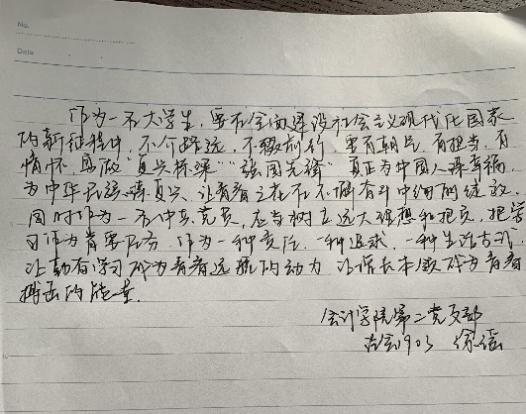 No.
Date
作为一名大学生,要在全面建设社会主义现代化国家
的新征程中,不介路远,不辍前行,要有朝气,有担当,有
情怀,勇做“复兴栋梁”“强国先锋”真正为中国人谋幸福,
为中华民族谋复兴,让青春之花在不懈奋斗中绚丽绽放。
同时作为一名中共党员,应当树立远大理想和抱负,把学
习作为首要任务,作为一种责任,一种追求,一种生活方式,
让勤奋学习成为青春远航的动力,让增长本领成为青春
搏击的能量。
会计学院第二党支部
1903 徐瑶